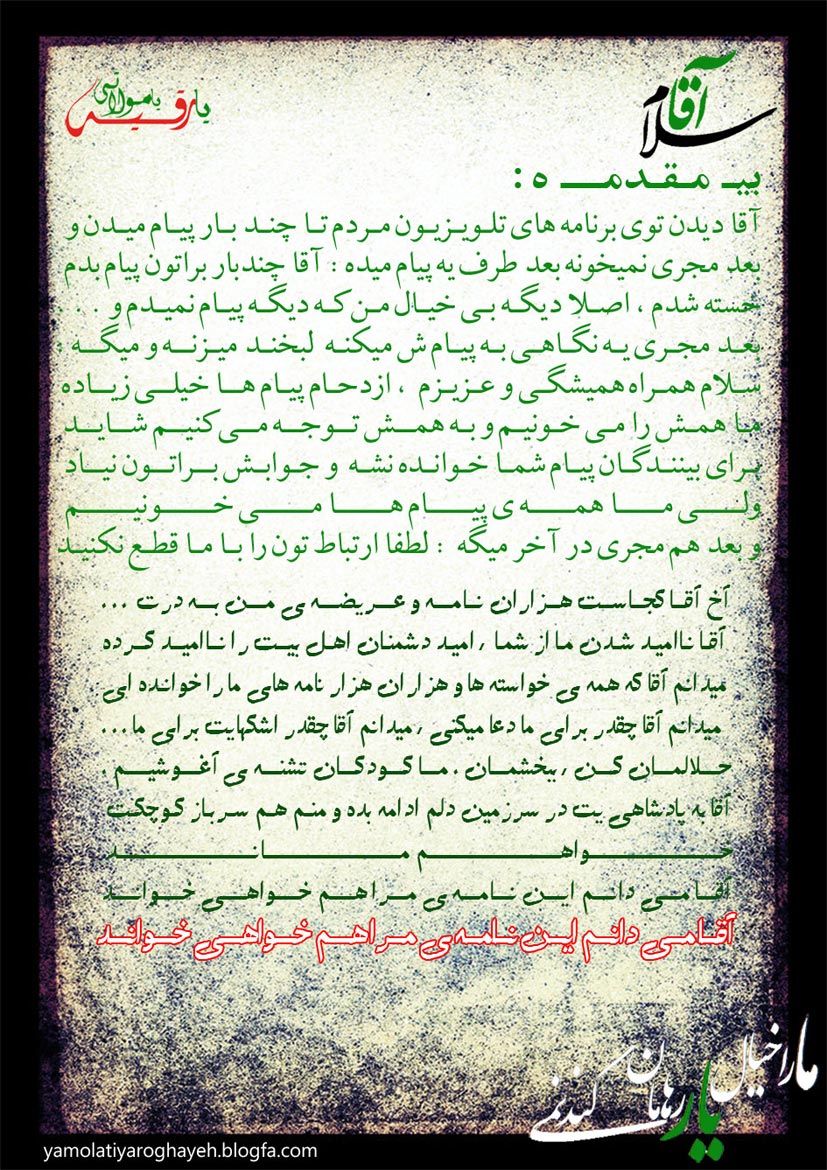 سلام آقا
یا رقیه
یا مولاتی
بیـ مـقـدمـــ ه :
آقا دیدن توی برنامه های تلـویـزیـون مـردم تـا چنـد بـار پیـام میـدن و
بعد مجری نمیخونه بعد طرف یه پیام میده : آقا چندبار براتون پیام بدم
خسته شدم ، اصـلا دیگـه بـی خیـال مـن کـه دیگـه پیـام نمیـدم و . . .
بعـد مجـری یـه نگـاهـی بـه پیـام ش میکنـه لبخنـد میـزنـه و میگـه :
سـلام همـراه همیشگـی و عـزیـزم ، ازدحـام پیـام هـا خیلـی زیـاده
مـا همـش را مـی خـونیـم و بـه همـش تـوجـه مـی کنیـم شـایـد
بـرای بیننـدگـان پیـام شمـا خوانـده نشـه و جـوابـش بـراتـون نیـاد
ولـی مـا همـه ی پیـام هـا مـی خـونیـم
و بعد هم مجری در آخر میگه : لطفا ارتباط تون را بـا مـا قطـع نکنیـد
آخ آقـا کجـاسـت هـزاران نـامـه و عـریضـه ی مـن بـه درت ...
آقـا ناامیـد شـدن مـا از شمـا ، امیـد دشمنـان اهـل بیـت را نـاامیـد کـرده
میدانم آقا که همه ی خواسته ها و هزاران هزار نامه های ما را خوانده ای
میدانم آقا چقدر برای ما دعا میکنی ، میدانم آقا چقدر اشکهایت برای ما...
حـلالمـان کـن ، ببخشمـان . مـا کـودکـان تشنـه ی آغـوشیـم .
آقا به پادشاهی یت در سرزمین دلم ادامه بده و منم هم سرباز کوچکت
خـواهـم مـانـد
آقـا مـی دانـم ایـن نـامـه ی مـرا هـم خـواهـی خـوانـد
آقـا مـی دانـم ایـن نـامـه ی مـرا هـم خـواهـی خـوانـد
ما را خیال یار رهامان نمی کند
yamolatiyaroghayeh.blogfa.com